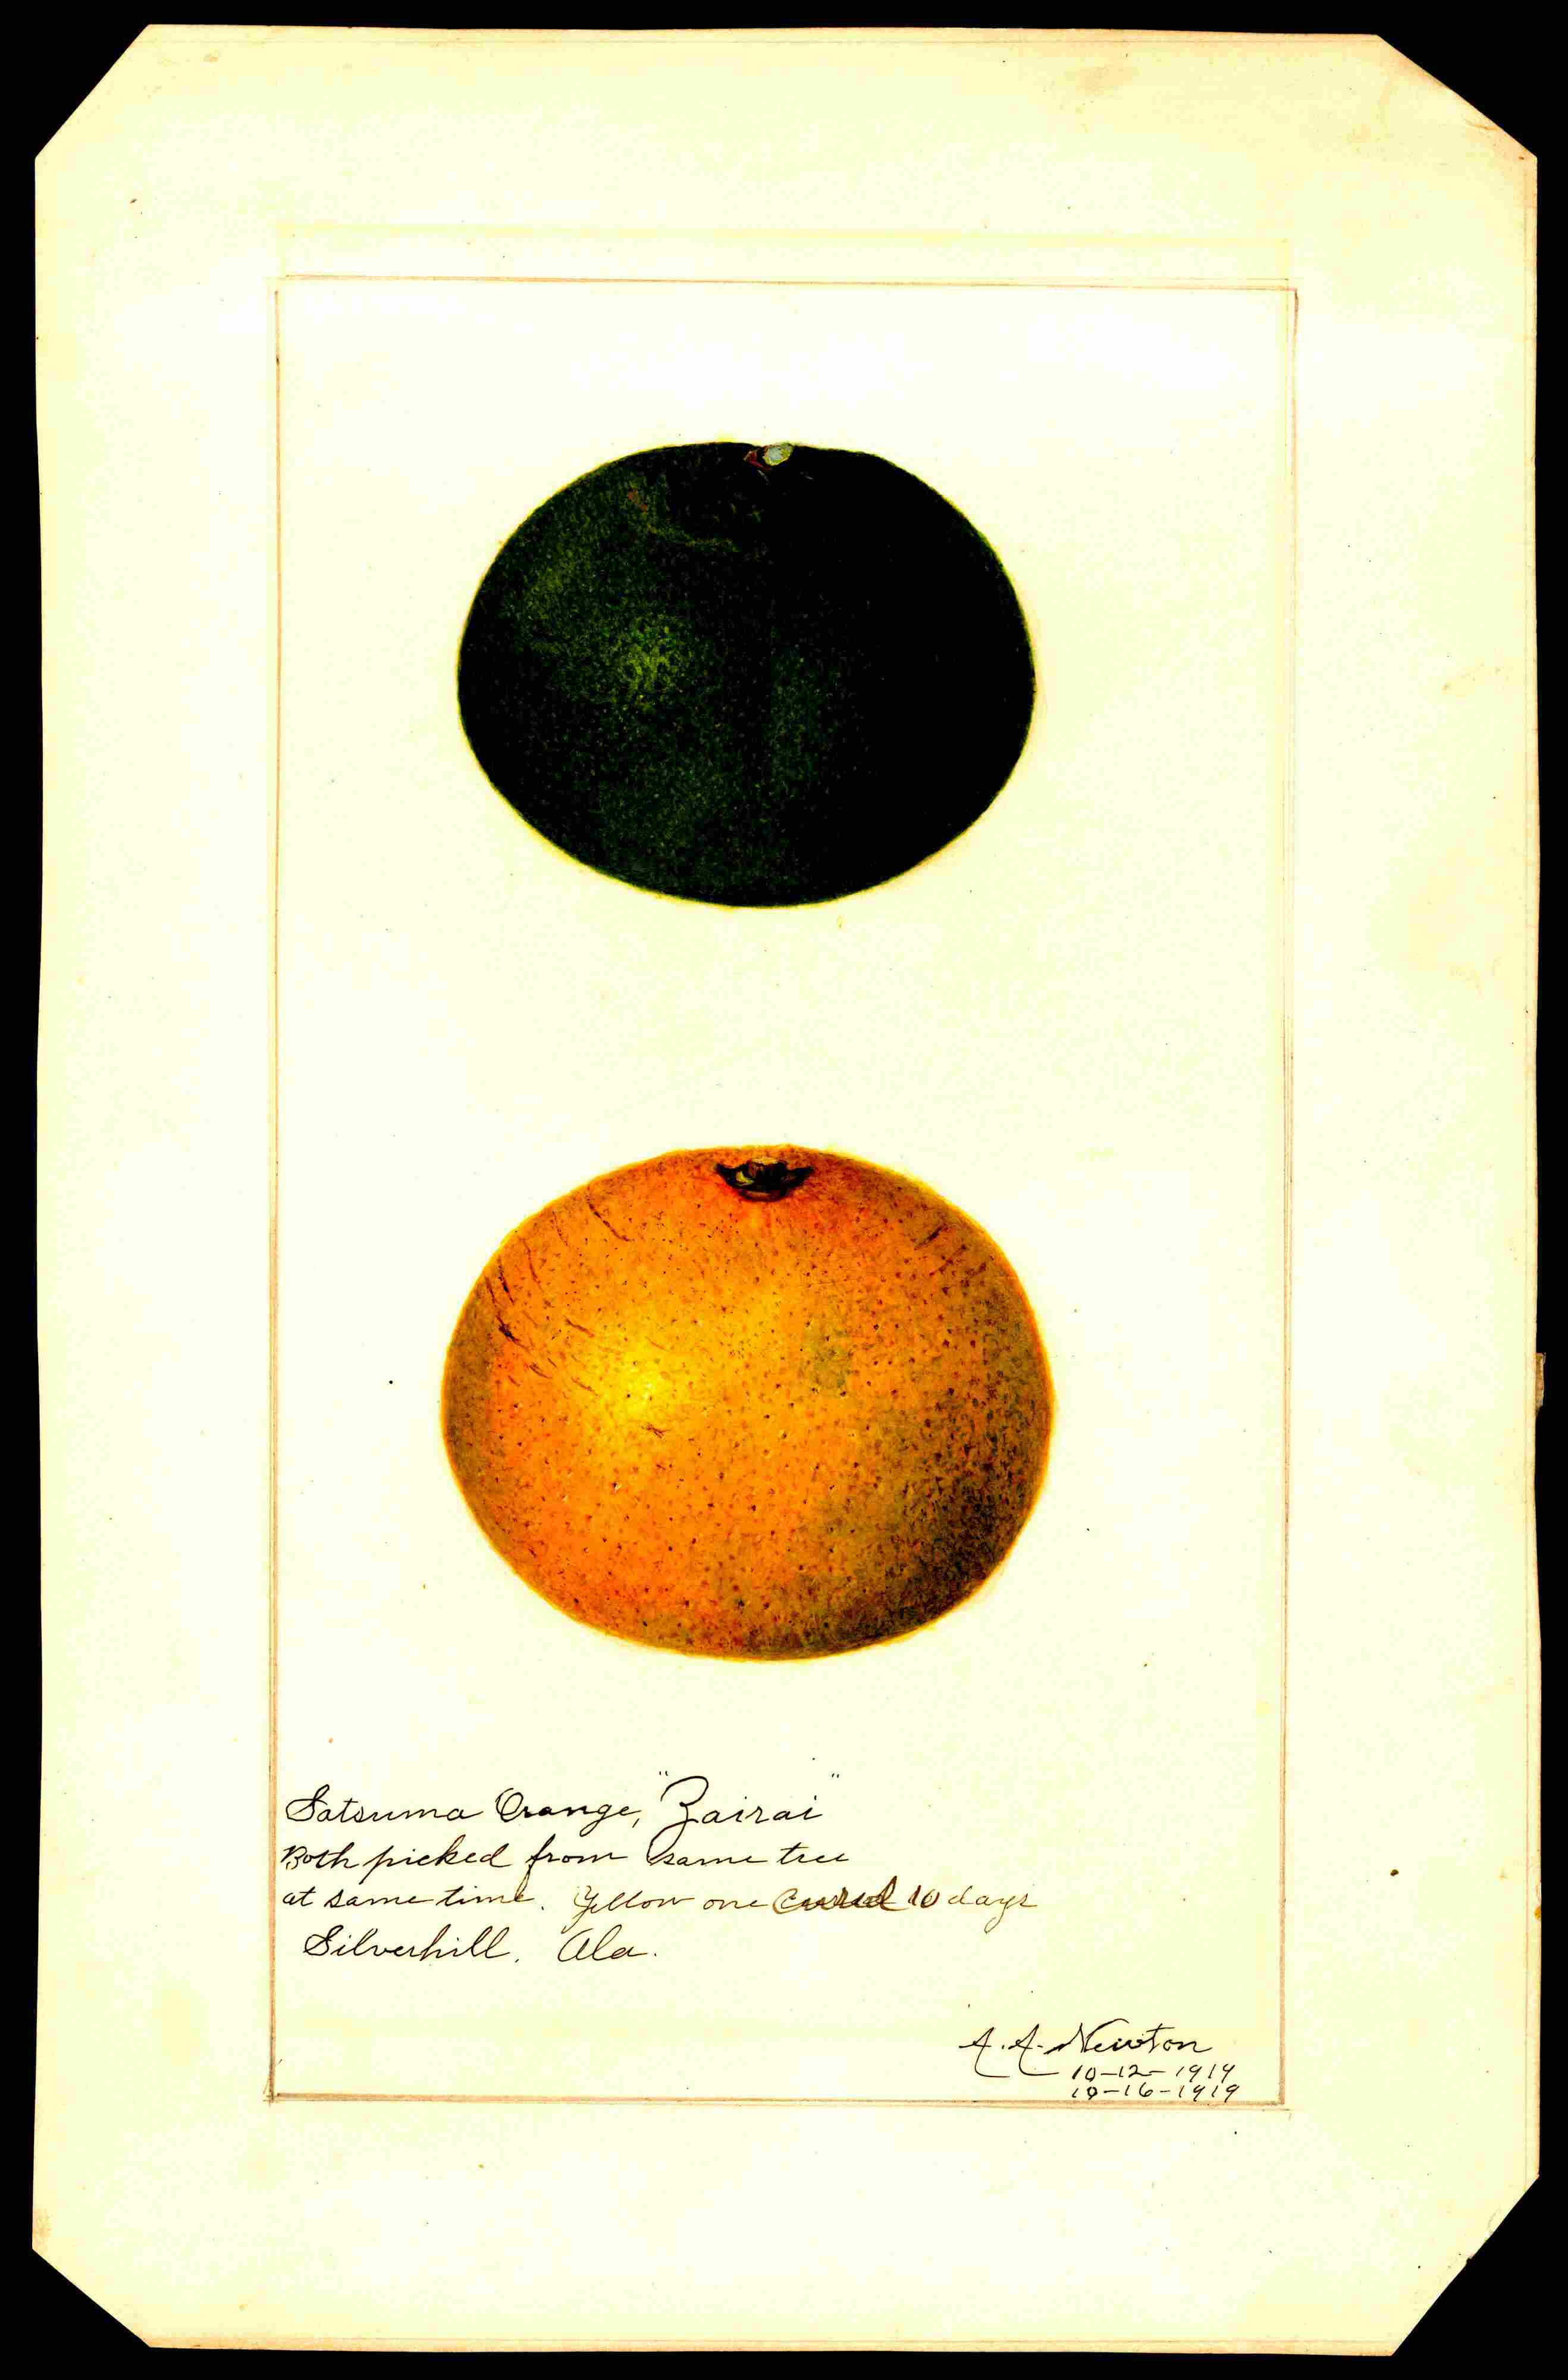 Satsuma Orange, "Zairai"
Both picked from same tree
at same time. Yellow one Cured 10 days
Silverhill, Ala.
A. A. Newton
10-12-1919
10-16-1919